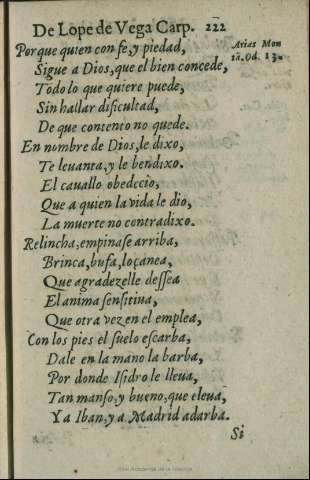 De Lope de Vega Carp. 222
Porque quien con fe, y piedad,
Arias Mon
ta. Od. 13.
Sigue a Dios, que el bien concede,
Todo lo que quiere puede,
Sin hallar dificultad,
De que contento no quede.
En nombre de Dios, le dixo,
Te levanta, y le bendixo.
El cauallo obedecio,
Que a quien la vida le dio,
La muerte no contradixo.
Relincha, empinase arriba,
Brinca, bufa, loçanea,
Que agradezelle dessea
El anima sensitiua,
Que otra vez en el emplea,
Con los pies el suelo escarba,
Dale en la mano la barba,
Por donde Isidro le lleua,
Tan manso, y bueno, que eleua,
Y a Iban, y a Madrid adarba.
Si